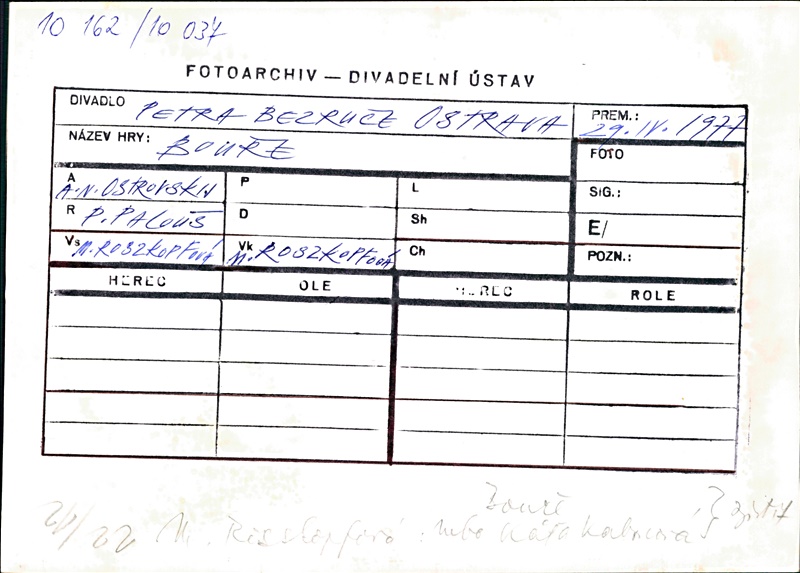 10 162/10 037
FOTOARCHIV — DIVADELNÍ ÚSTAV
DIVADLO PETRA BEZRUČE OSTRAVA PREM.: 29. IV. 1977
NÁZEV HRY: BOUŘE FOTO
A A.N. OSTROVSKIJ P L SIG.:
R P. PALOUŠ D Sh E/
Vs M. ROSZKOPFOVÁ Vk M. ROSZKOPFOVÁ Ch POZN.:
HEREC OLE REC ROLE
Bouře
M. nebo Káťa